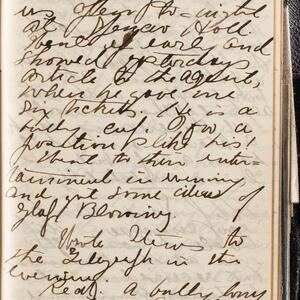 at Spencer Hall.
Went up early and
showed yesterdays
article to the agent,
when he gave me
six tickets. He is a
lucky cuf. I for a
position like his!
Went to their enter-
tainment in evening
and got some ideas of
Glass Blowing.
Wrote News to
the Telegraph in the
evening.
Read. a bully long